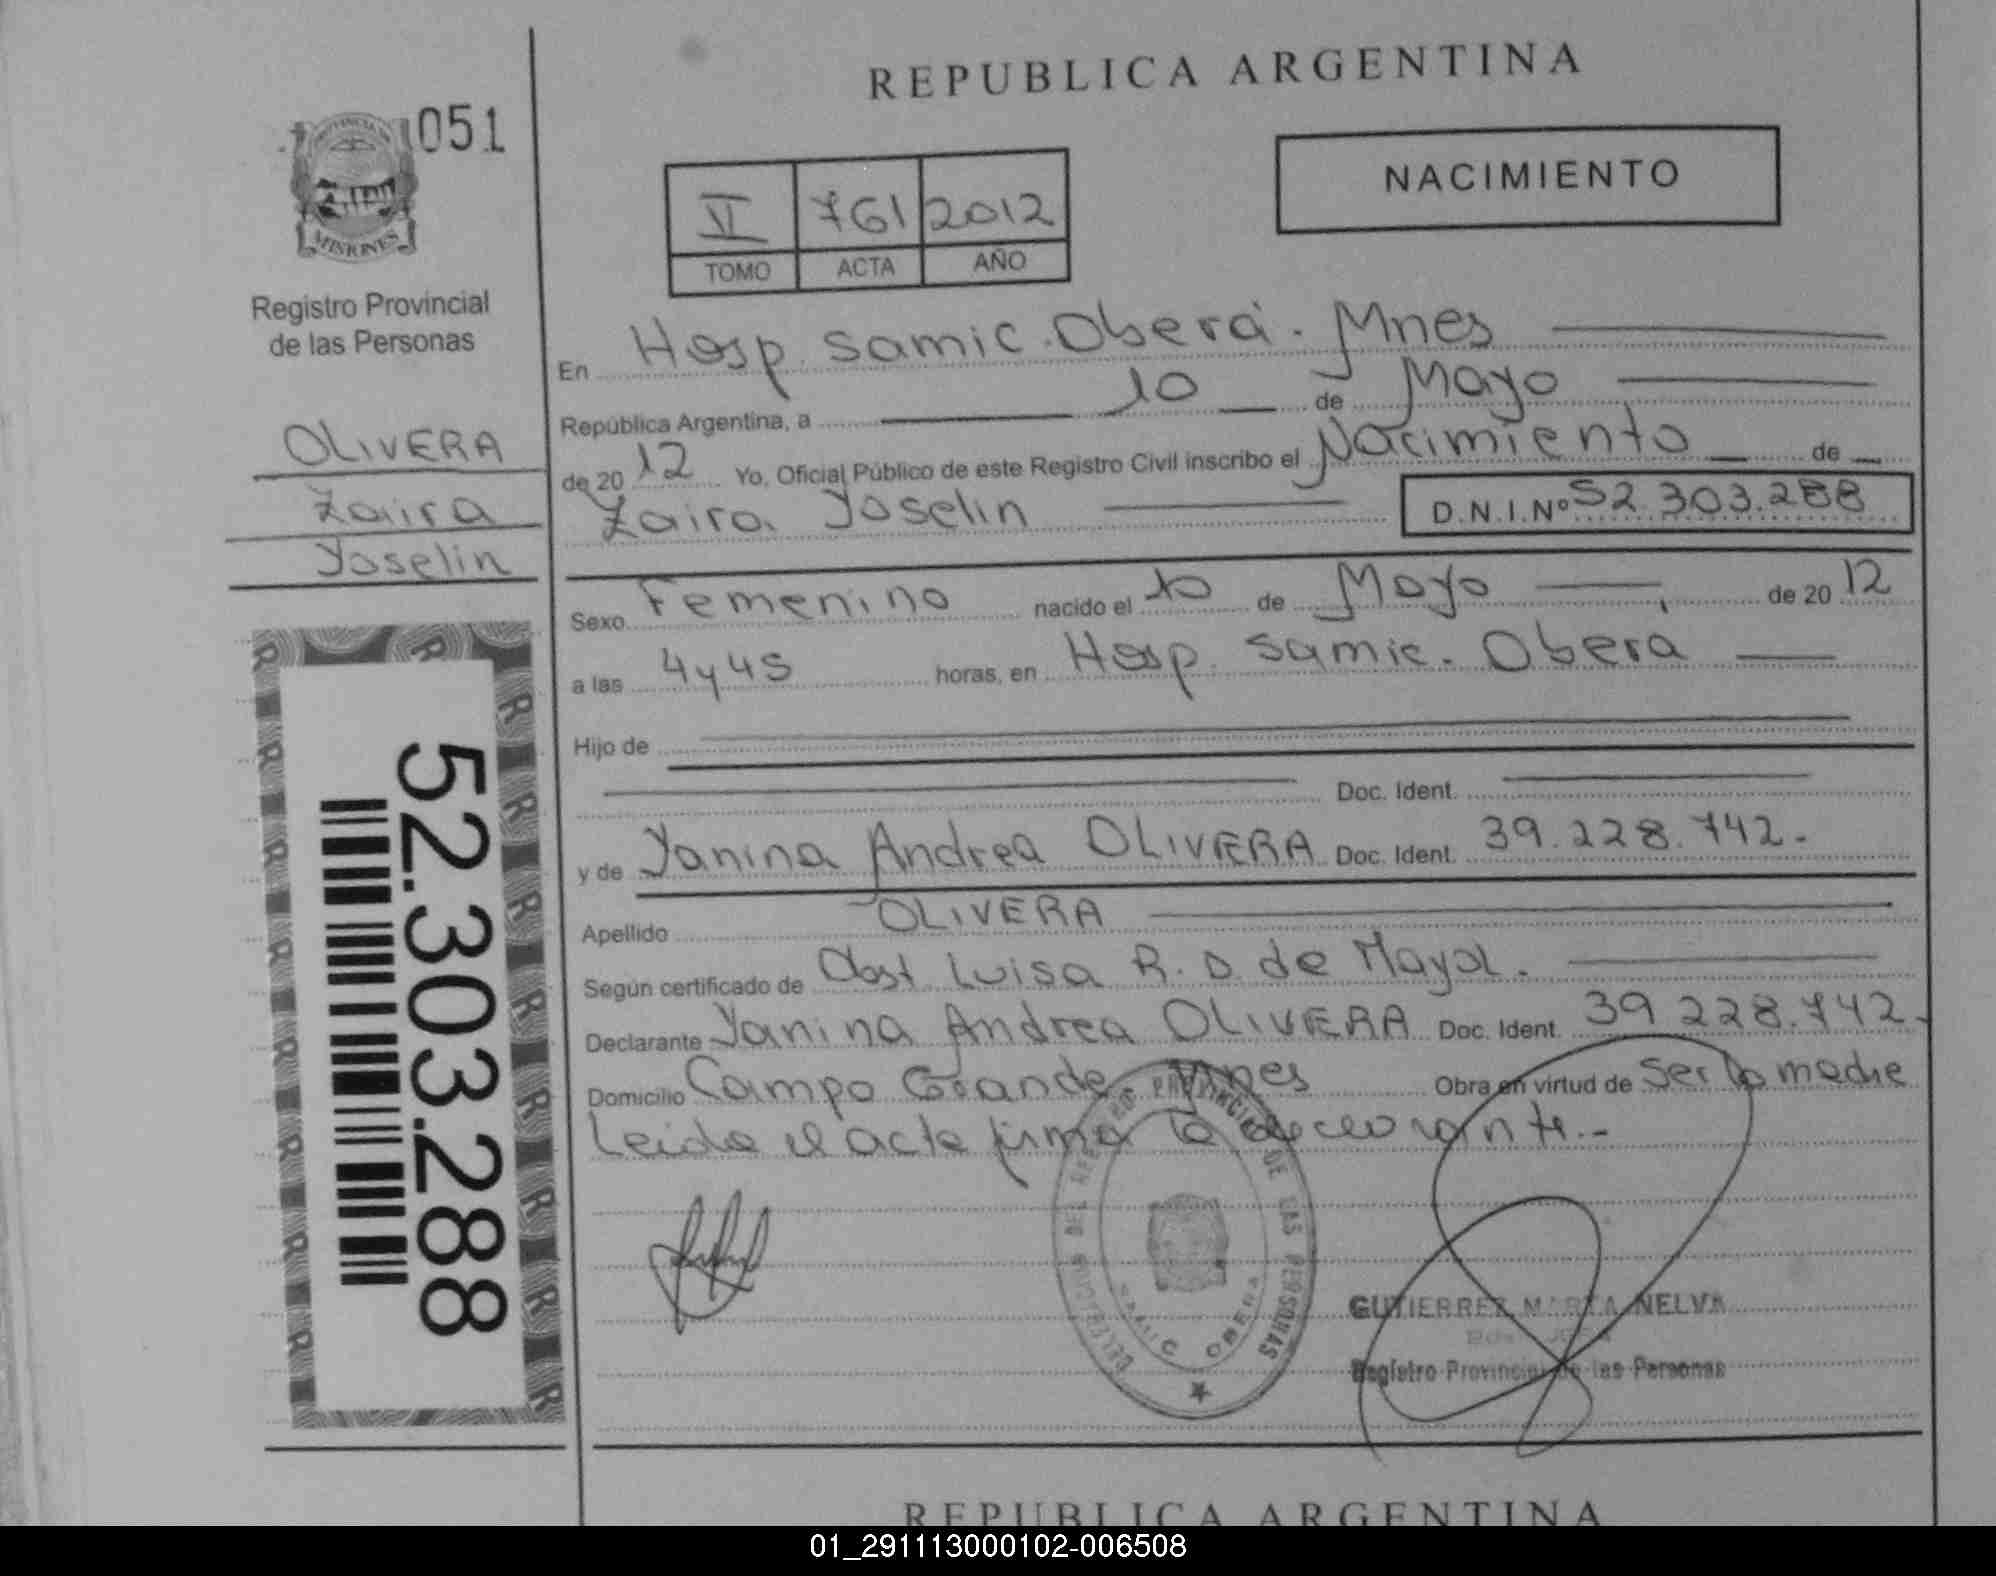 REPUBLICA ARGENTINA
051
PROVINCIA DE
MISIONES
Registro Provincial
de las Personas
NACIMIENTO
VI 761 2012
TOMO ACTA AÑO
OLIVERA
Zaira
Yoselin
En Hosp. Samic. Oberá. Mnes
República Argentina, a 10 de Mayo
de 20 12 Yo, Oficial Público de este Registro Civil inscribo el Nacimiento de
Zaira Yoselin D.N.I.Nº 52.303.288
Sexo Femenino nacido el 10 de Mayo de 20 12
a las 4 y 45 horas, en Hosp. Samic. Oberá
Hijo de
Doc. Ident.
y de Yanina Andrea OLIVERA Doc. Ident. 39.228.742.-
Apellido OLIVERA
Según certificado de Obst Luisa R. D. de Mayol.
Declarante Yanina Andrea OLIVERA Doc. Ident. 39 228.742.
Domicilio Campo Grande Mnes Obra en virtud de Ser la madre
Leida el acta firma la declarante.-
52.303.288
DELEGACION DEL REGISTRO PROVINCIAL DE LAS PERSONAS
SAMIC OBERA
GUTIERREZ MARTA NELVA
Registro Provincial de las Personas
REPUBLICA ARGENTINA
01_291113000102-006508